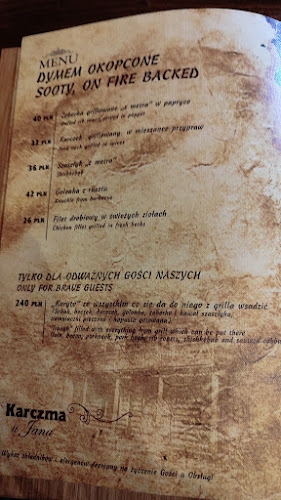 MENU
DYMEM OKOPCONE
SOOTY, ON FIRE BACKED
40 PLN Żeberka grillowane „z metra" w papryce
Grilled rib rolled in pepper
32 PLN Karczek grillowany, w mieszance przypraw
Pork neck grilled in spices
36 PLN Szaszłyk „z metra"
Shishkebab
42 PLN Golonka z rusztu
Knuckle from barbecue
26 PLN Filet drobiowy w świeżych ziołach
Chicken fillet grilled in fresh herbs
TYLKO DLA ODWAŻNYCH GOŚCI NASZYCH
ONLY FOR BRAVE GUESTS
240 PLN „Koryto" ze wszystkim co się da do niego z grilla wsadzić
boczek, karczek, golonka, żeberka i kawał szaszłyka,
ziemniaczki pieczone i kapusta grillowana
"Trough" filled with everything from grill which can be put there
bacon, pork neck, pork knuckle, roasts, shishkebab and
Karczma
u Jana
Wykaz składników i alergenów dostępny na życzenie Gości u Obsługi